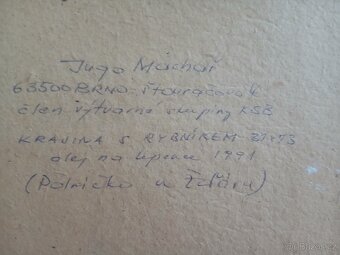 Jugo Máchař
63500 BRNO-Štouračova 4
člen výtvarné skupiny KSB
KRAJINA S RYBNÍKEM-31x73
olej na lepence 1991
(Polničko u Žďáru)